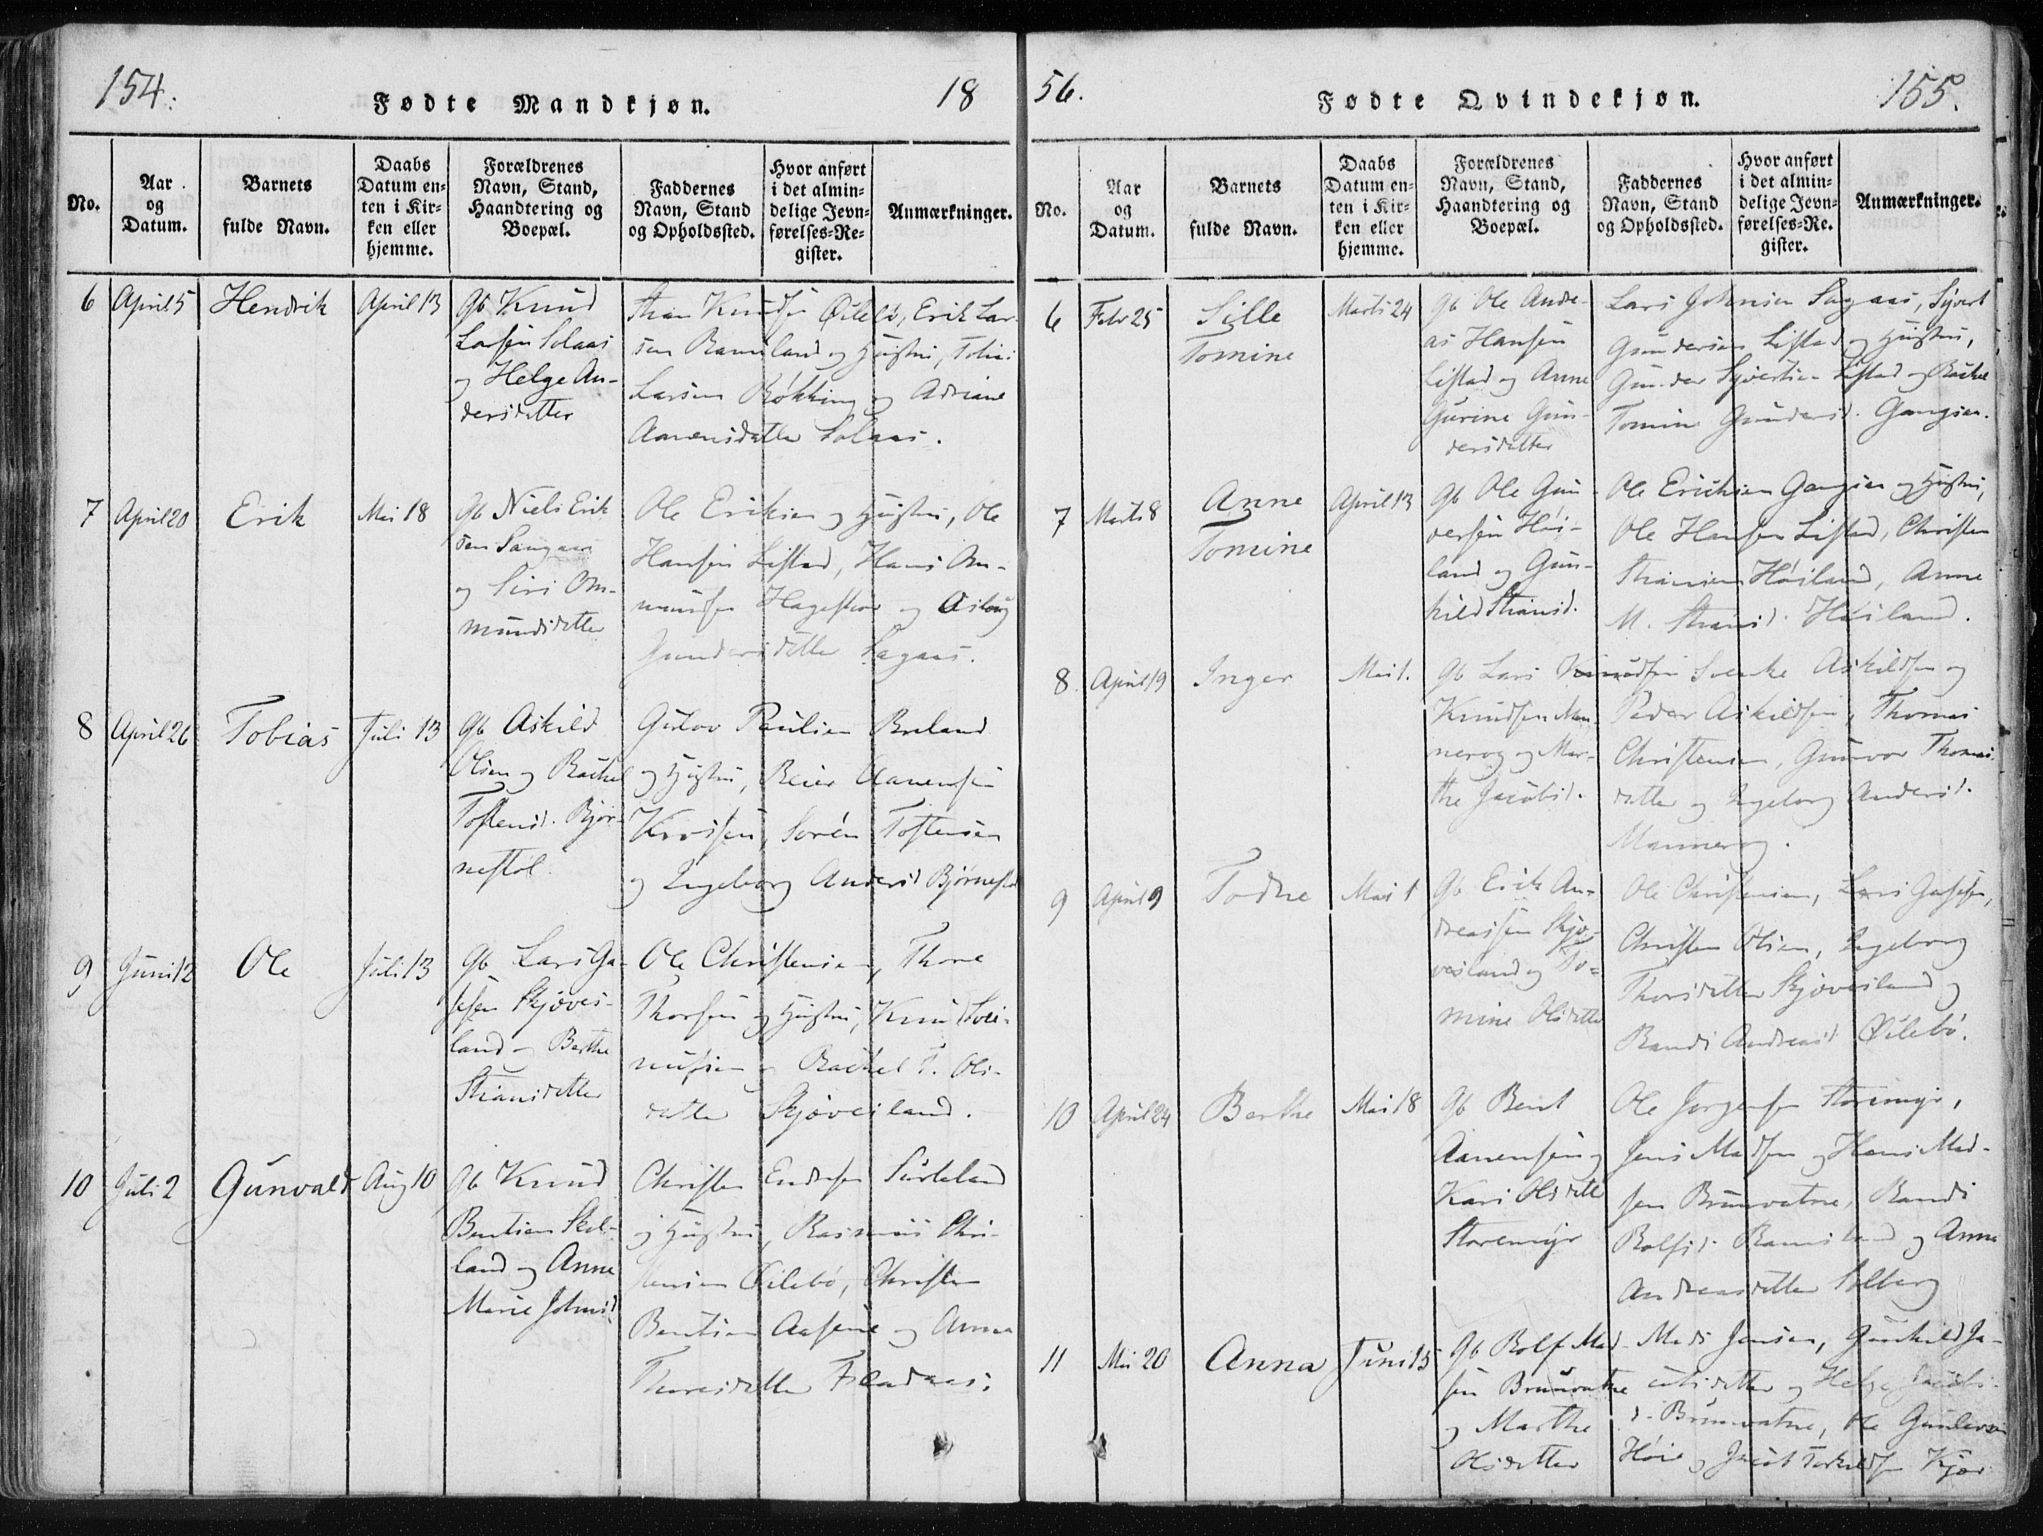 154.
Fødte Mandkjøn.
18
No.
Aar og Datum.
Barnets fulde Navn.
Daabs Datum enten i Kirken eller hjemme.
Forældrenes Navn, Stand, Haandtering og Boepæl.
Faddernes Navn, Stand og Opholdssted.
Hvor anført i det almindelige Jevnførelses-Register.
Anmærkninger.
6 April 5 Hendrik April 13
Gb Knud
Larsen Solaas
og Helge An-
dersdatter
Knudsen Øilebø, Erik Lar-
sen Ramsland og Hustru, Tobias
Larsen Røkking og Adriane
Aanensdatter Solaas.
7 April 20 Erik Mai 18
Gb Niels Erik
sen
og Siri Om-
mundsdatter
Ole Eriksen og Hustru, Ole
Hansen Listad, Hans Om-
mundsen og Aslaug
Gundersdatter Sagaas.
8 April 26 Tobias Juli 13
Gb Askild
Olsen og Rachel
Tostensd. Bjør-
nestøl.
Gulov Paulsen Breland
og Hustru, Reier Aanensen
Søren Tostensen
og Ingeborg Andersd Bjørnestøl
9 Juni 12 Ole Juli 13
Gb Lars Ga-
sesen Skjøves-
land og Berthe
Stiansdatter
Ole Christensen, Thore
Thorsen og Hustru, Knud Svei-
nungsen og Rachel T. Ols-
datter Skjøveiland.
10 Juli 2 Gunvald Aug 10
Gb Knud
Bentsen Skei-
land og Anne
Marie Johnsd.
Christen Endresen Surteland
og Hustru, Rasmus Chri-
stensen Øilebø, Christen
Bentsen Aasene og Anna
Thoresdatter Fladaas.
56.
Fødte Qvindekjøn.
155.
No.
Aar og Datum.
Barnets fulde Navn.
Daabs Datum enten i Kirken eller hjemme.
Forældrenes Navn, Stand, Haandtering og Boepæl.
Faddernes Navn, Stand og Opholdssted.
Hvor anført i det almindelige Jevnførelses-Register.
Anmærkninger.
6 Febr 25 Sille Tomine Marts 24
Gb Ole Andre-
as Hansen
Listad og Anne
Gurine Gun-
dersdatter
Lars Johnsen Sagaas, Syvert
Gundersen Listad og Hustru,
Gunder Syvertsen Listad og Rachel
Tomine Gundersd.
7 Marts 8 Anne Tomine April 13
Gb Ole Gun-
versen Høi-
land og Gun-
hild Stiansd.
Ole Ericksen og Hustru,
Ole Hansen Listad, Christen
Stiansen Høiland, Anne
M. Stiansd. Høiland.
8 April 19 Inger Mai 1.
Gb Lars
Knudsen Man-
nerog og Mar-
the Jacobsd.
Svenke Askildsen og
Peder Askildsen, Thomas
Christensen, Gunvor Thomas-
datter og Ingeborg Andersd.
Mannerog.
9 April 9 Todne Mai 1
Gb Erik An-
dreassen Skjø-
veiland og To-
mine Olsdatter
Ole Christensen, Lars Gasesen,
Christen Olsen, Ingeborg
Thorsdatter Skjøveiland og
Randi Andreasd Øilebø.
10 April 24 Berthe Mai 18
Gb Bent
Aanensen og
Kari Olsdatter
Storemyr
Ole Jørgensen Storemyr,
Jens Madsen og Hans Mad-
sen Brunvatne, Randi
Rolfsd. Ramsland og Anne
Andreasdatter Solberg
11 Mai 20 Anna Juni 15
Gb Rolf Mad-
sen Brunvatne
og Marthe
Olsdatter
Mads Jensen, Gunhild Ja-
cobsdatter og Helge Jacobs-
d. Brunvatne, Ole Gunlevsen
Høie og Jacob Torkildsen